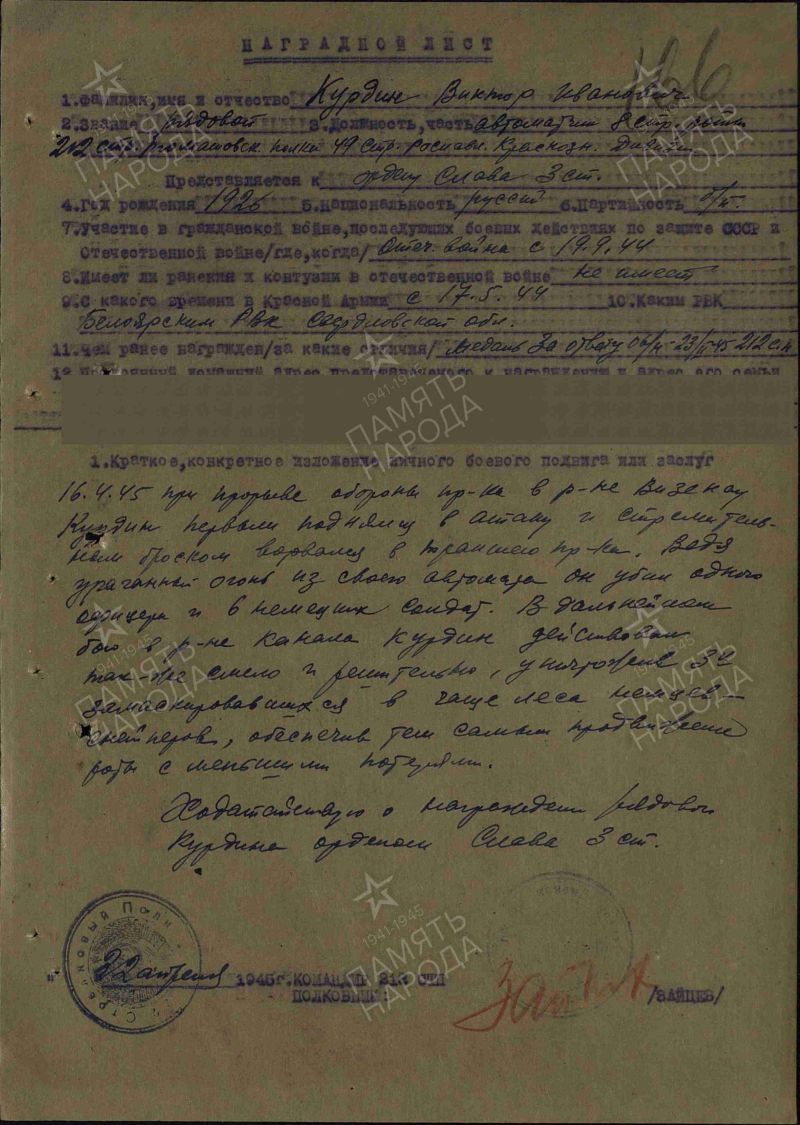 НАГРАДНОЙ ЛИСТ
1.Фамилия,имя и отчество Курдин Виктор Иванович
2.Звание рядовой 3.Должность,часть автоматчик 8 стр. роты
212 стр. полка 49 стр. Рославл. Краснозн. Дивизии
Представляется к ордену Слава 3 ст.
4.Год рождения 1926 5.Национальность русский 6.Партийность б/п.
7.Участие в гражданской войне,последующих боевых действиях по защите СССР и
Отечественной войне/где,когда/ Отеч. война с 19.9.44
8.Имеет ли ранения и контузии в отечественной войне не имеет
9.С какого времени в Красной Армии с 17.5.44 10.Каким РВК
Белоярским РВК Свердловской обл.
11.Чем ранее награжден/за какие отличия/ медаль За отвагу
1.Краткое,конкретное изложение личного боевого подвига или заслуг
16.4.45 при прорыве обороны пр-ка в р-не Визенау
Курдин первым поднялся в атаку и стремитель-
ным броском ворвался в траншею пр-ка. Ведя
ураганный огонь из своего автомата он убил одного
офицера и 6 немецких солдат. В дальнейшем
бою в р-не канала Курдин действовал
так-же смело и решительно, уничтожив 3х
замаскировавшихся в чаще леса немцев-
снайперов, обеспечив тем самым продвижение
роты с меньшими потерями.
Ходатайствую о награждении рядового
Курдина орденом Слава 3 ст.
Стрелковый Полк
"22 апреля 1945г. КОМАНДИР 212 СТП
ПОЛКОВНИК: /ЗАЙЦЕВ/
1941-1945
ПАМЯТЬ
НАРОДА